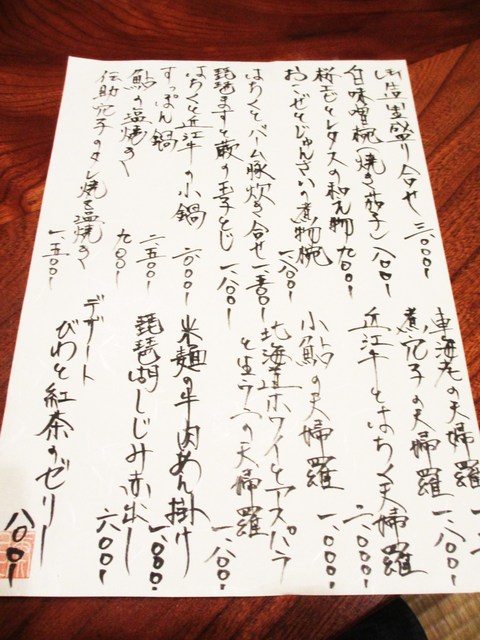 お造里盛り合せ 三、〇〇〇
白味噌椀(焼き茄子) 八〇〇
桜エビとレタスの和え物 九〇〇
おこぜとじゅんさいの煮物椀 一、八〇〇
はちくとバーム豚炊き合せ 一、五〇〇
琵琶ますと蕨の玉子とじ 一、八〇〇
はちくと近江牛の小鍋 二、〇〇〇
すっぽん鍋 二、五〇〇
鮎の塩焼き 九〇〇
伝助穴子のタレ焼き塩焼き 一、五〇〇
車海老の天婦羅
煮穴子の天婦羅 一、八〇〇
近江牛とはちく天婦羅 二、〇〇〇
小鮎の天婦羅 一、〇〇〇
北海道ホワイトアスパラ
と生ウニの天婦羅 一、八〇〇
米麺の牛肉あん掛け 一、〇〇〇
琵琶湖しじみ赤出し 六〇〇
デザート
びわと紅茶のゼリー 八〇〇